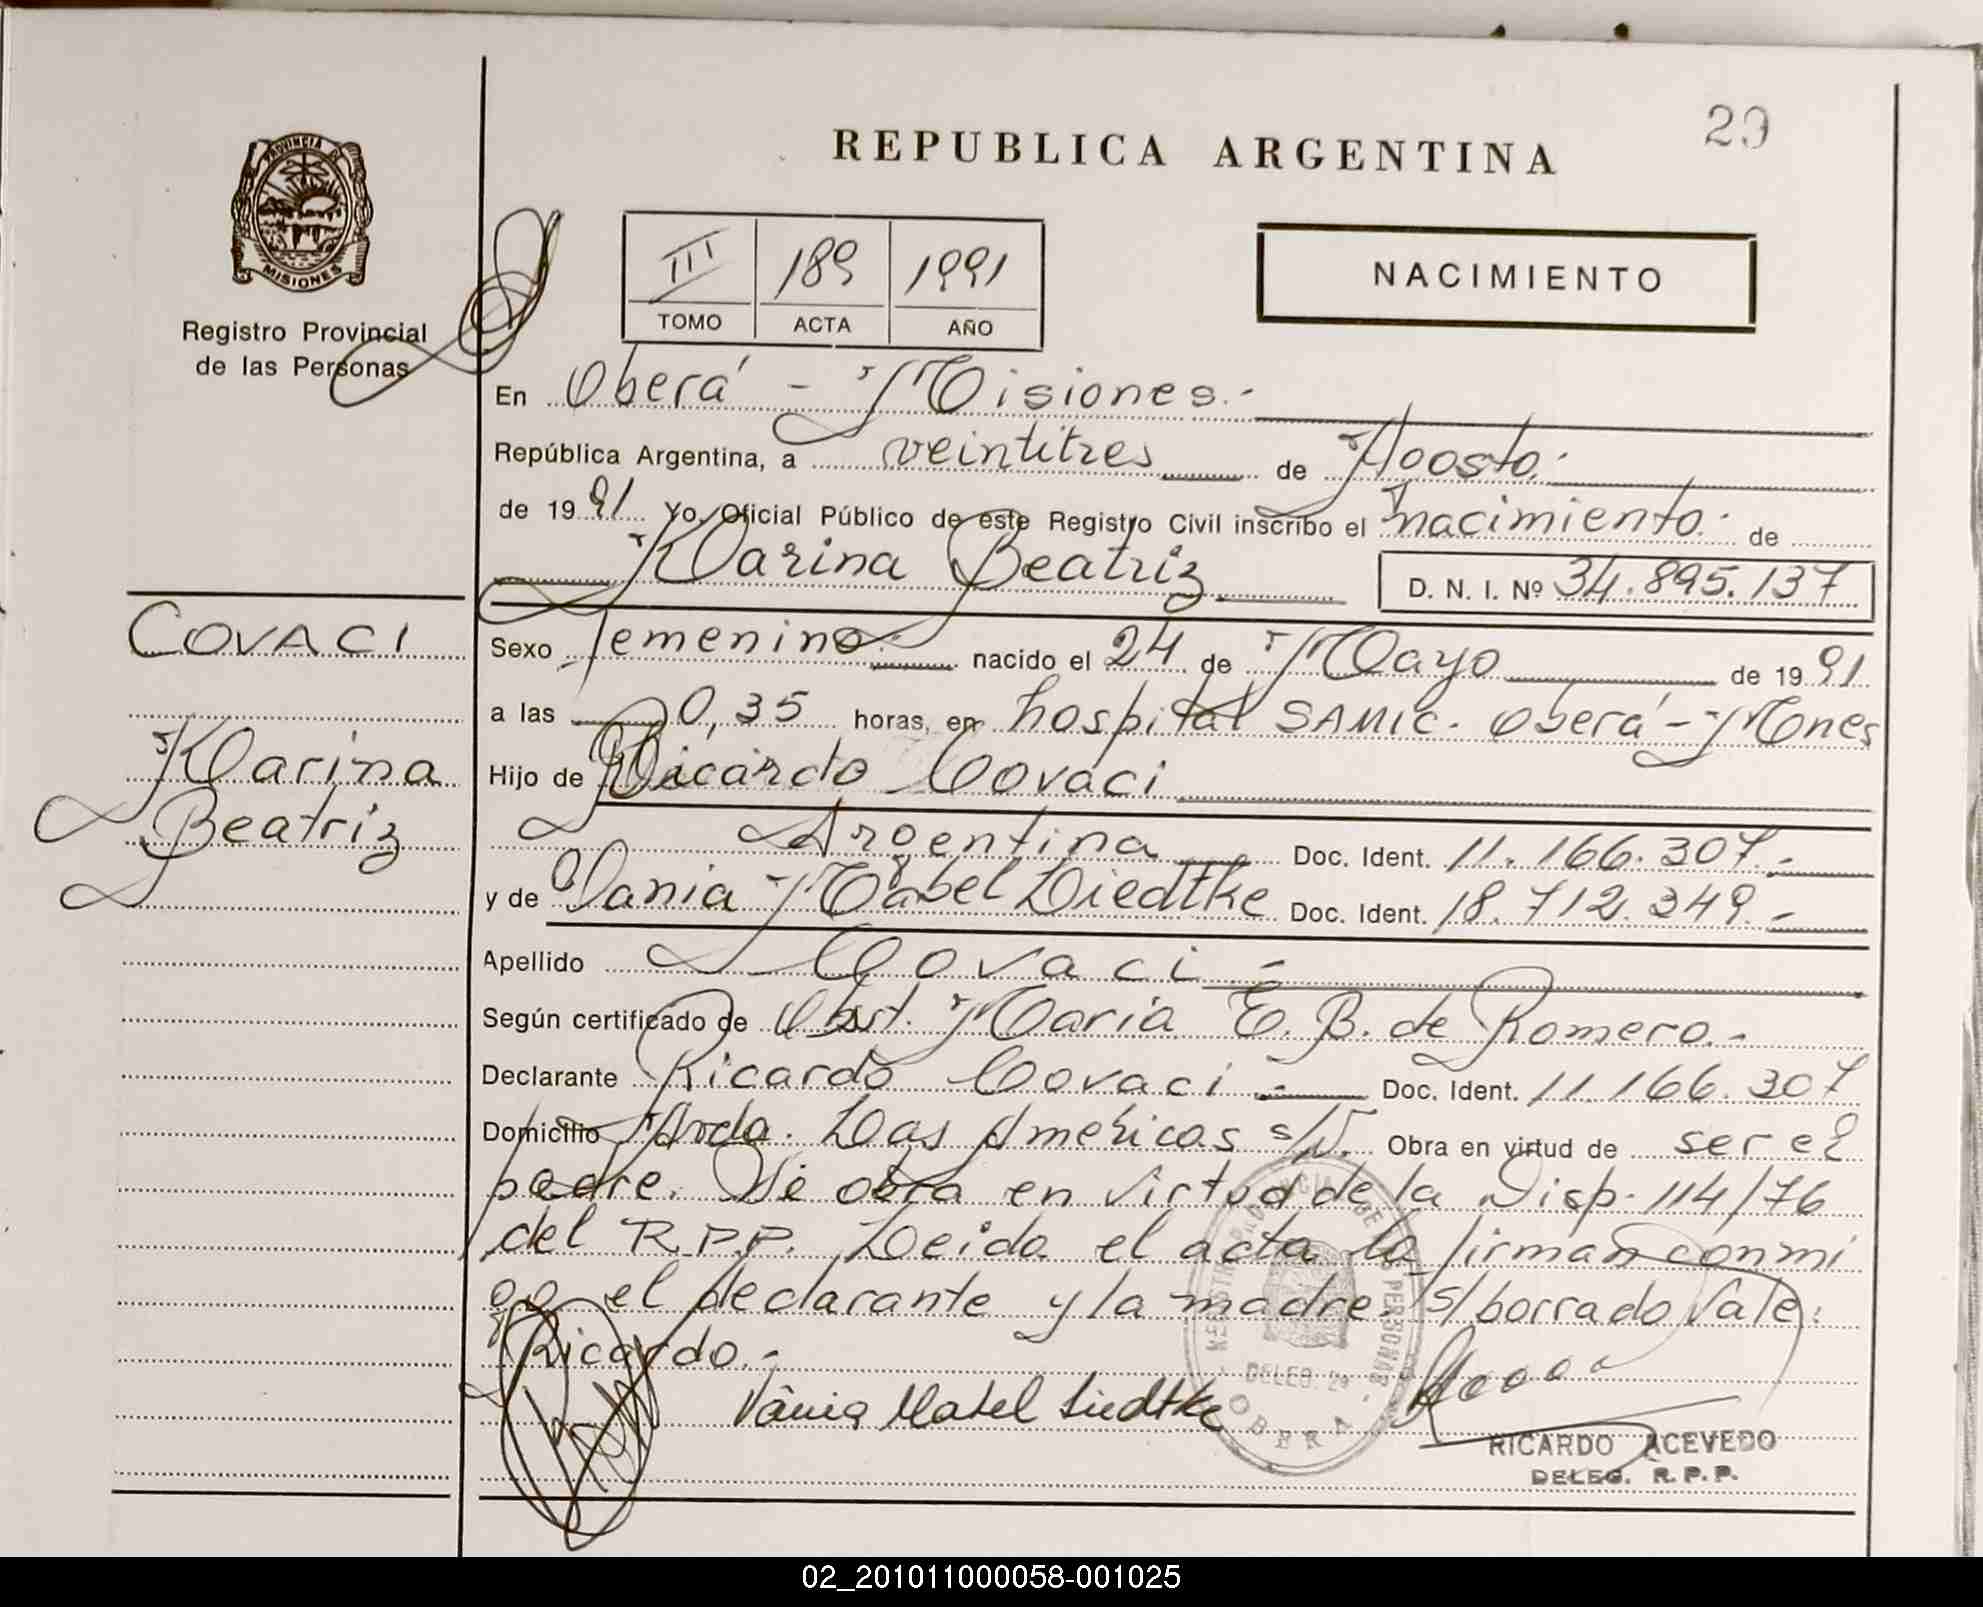 29
REPUBLICA ARGENTINA
PROVINCIA DE
MISIONES
Registro Provincial
de las Personas
III 189 1991
TOMO ACTA AÑO
NACIMIENTO
En Oberá - Misiones.-
República Argentina, a veintitres de Agosto.-
de 1991 Yo, Oficial Público de este Registro Civil inscribo el nacimiento.- de
Karina Beatriz D. N. I. Nº 34.895.137
COVACI
Karina
Beatriz
Sexo femenino.- nacido el 24 de Mayo de 1991
a las 0,35 horas, en hospital SAMIC. Oberá - Mnes
Hijo de Ricardo Covaci
Argentina Doc. Ident. 11.166.307.-
y de Vania Mabel Liedtke Doc. Ident. 18.712.349.-
Apellido Covaci -
Según certificado de Obst. Maria E. B. de Romero.-
Declarante Ricardo Covaci - Doc. Ident. 11.166.307
Domicilio Avda. Las Americas s/N. Obra en virtud de ser el
padre. Se obra en virtud de la Disp. 114/76
del R.P.P. Leida el acta la firman conmi
go el declarante y la madre. S/borrado Vale:
Ricardo.-
Vânia Mabel Liedtke
REGISTRO PROVINCIAL DE LAS PERSONAS
DELEG. 2ª
OBERA
RICARDO ACEVEDO
DELEG. R.P.P.
02_201011000058-001025